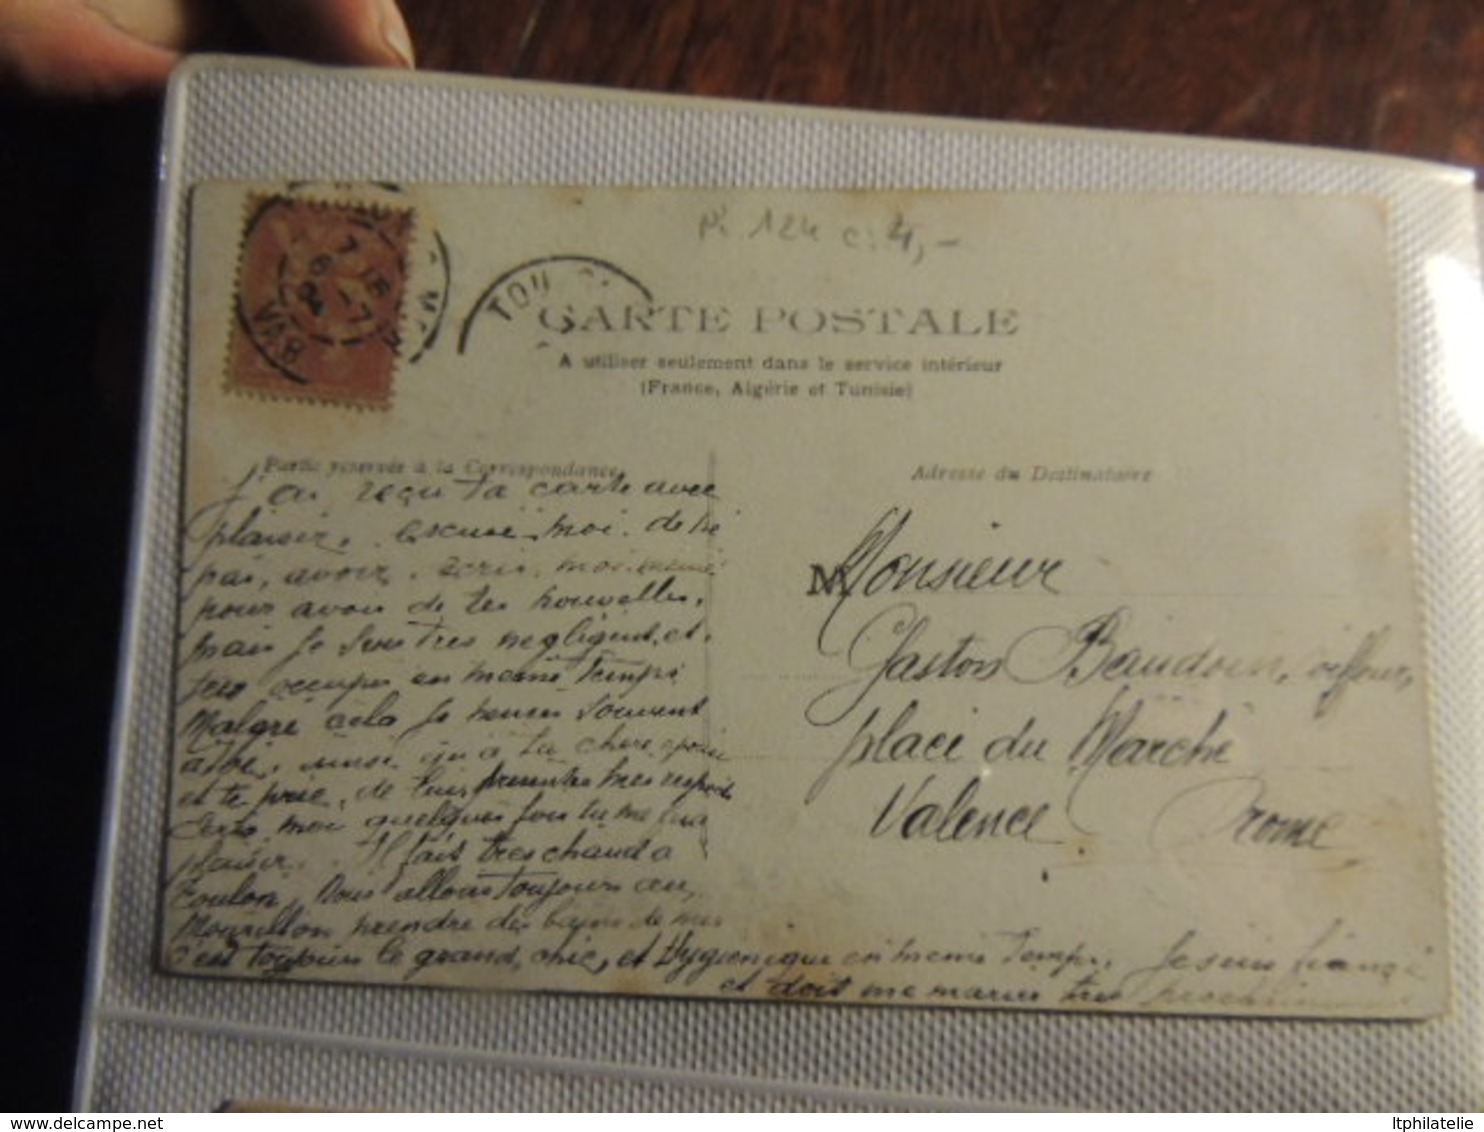 Pi 124 c: 4,-
TOU
VAR
CARTE POSTALE
A utiliser seulement dans le service intérieur
(France, Algérie et Tunisie)
Partie réservée à la Correspondance
Adresse du Destinataire
J'ai reçu ta carte avec
plaisir, excuse moi de ne
pas, avoir, écris, moi même
pour avoir de tes nouvelles,
mais je suis tres negligent, et
tres occupé en meme temps
Malgré cela je pense souvent
a toi, ainsi qu'à ta chere
et te prie, de lui presenter mes respects
moi quelques fois tu me fera
plaisir. Il fait tres chaud a
Toulon, Nous allons toujours au
Mourillon prendre des bains de mer
c'est toujours le grand, chic, et Hygienique en meme temps. Je suis fiancé
et doit me marier tres prochainement
M Monsieur
Gaston Baudoin, coiffeur,
place du Marché
Valence Drome
ltphilatelie